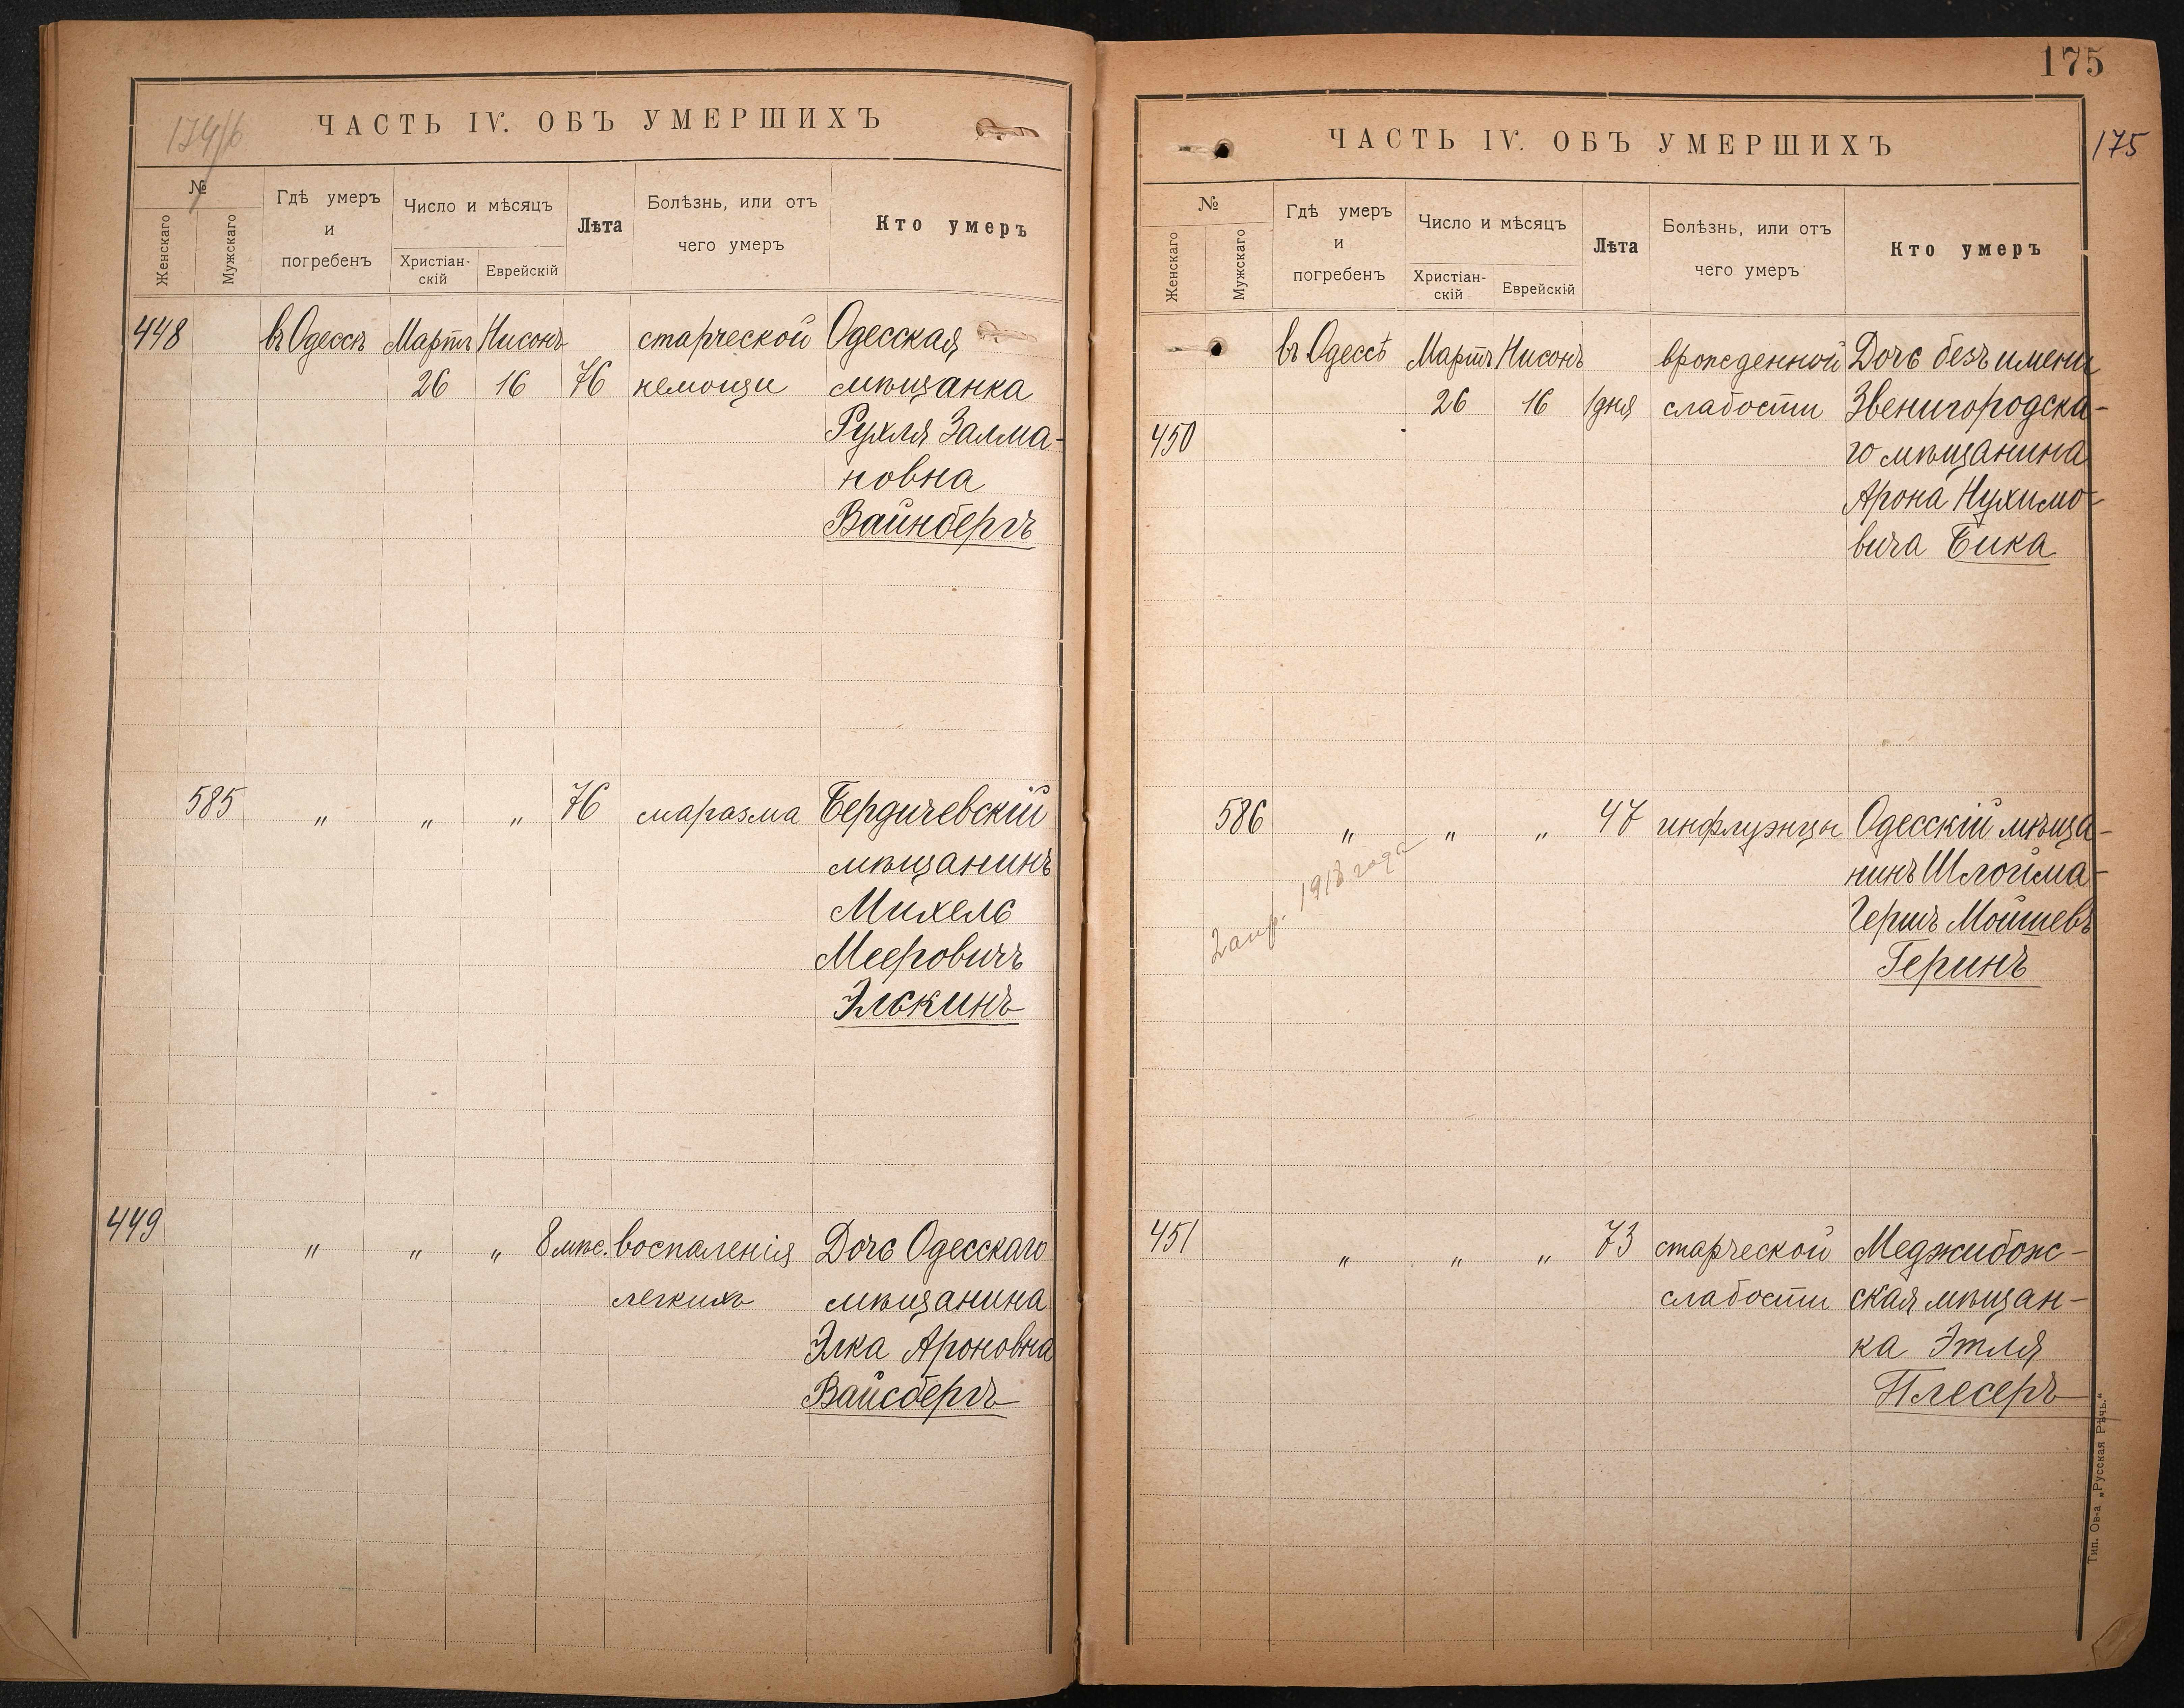 174/б
ЧАСТЬ IV. ОБЪ УМЕРШИХЪ
№
Женскаго
Мужскаго
Гдѣ умеръ
и
погребенъ
Число и мѣсяцъ
Христіан-
скій
Еврейскій
Лѣта
Болѣзнь, или отъ
чего умеръ
Кто умеръ
448 въ Одессѣ Мартъ Нисонъ старческой Одесская
26 16 76 немощи мѣщанка
Рухля Залма-
новна
Вайнбергъ
585 " " " 76 маразма Бердичевскій
мѣщанинъ
Михель
Мееровичъ
Элькинъ
449 " " " 8 мѣс. воспаленія Дочь Одесскаго
легкихъ мѣщанина
Элка Ароновна
Вайсбергъ
175
175
ЧАСТЬ IV. ОБЪ УМЕРШИХЪ
№
Женскаго
Мужскаго
Гдѣ умеръ
и
погребенъ
Число и мѣсяцъ
Христіан-
скій
Еврейскій
Лѣта
Болѣзнь, или отъ
чего умеръ
Кто умеръ
въ Одессѣ Мартъ Нисонъ врожденной Дочь безъ имени
26 16 1 дня слабости Звенигородска-
450 го мѣщанина
Арона Нухимо-
вича Бика
586 " " " 47 инфлуэнцы Одесскій мѣща-
нинъ Шлойма-
Гершъ Мошиевъ
Геринъ
2 апр. 1918 года
451 " " " 73 старческой Меджибож-
слабости ская мѣщан-
ка Этля
Плесеръ
Тип. Ов-а „Русская Рѣчь."